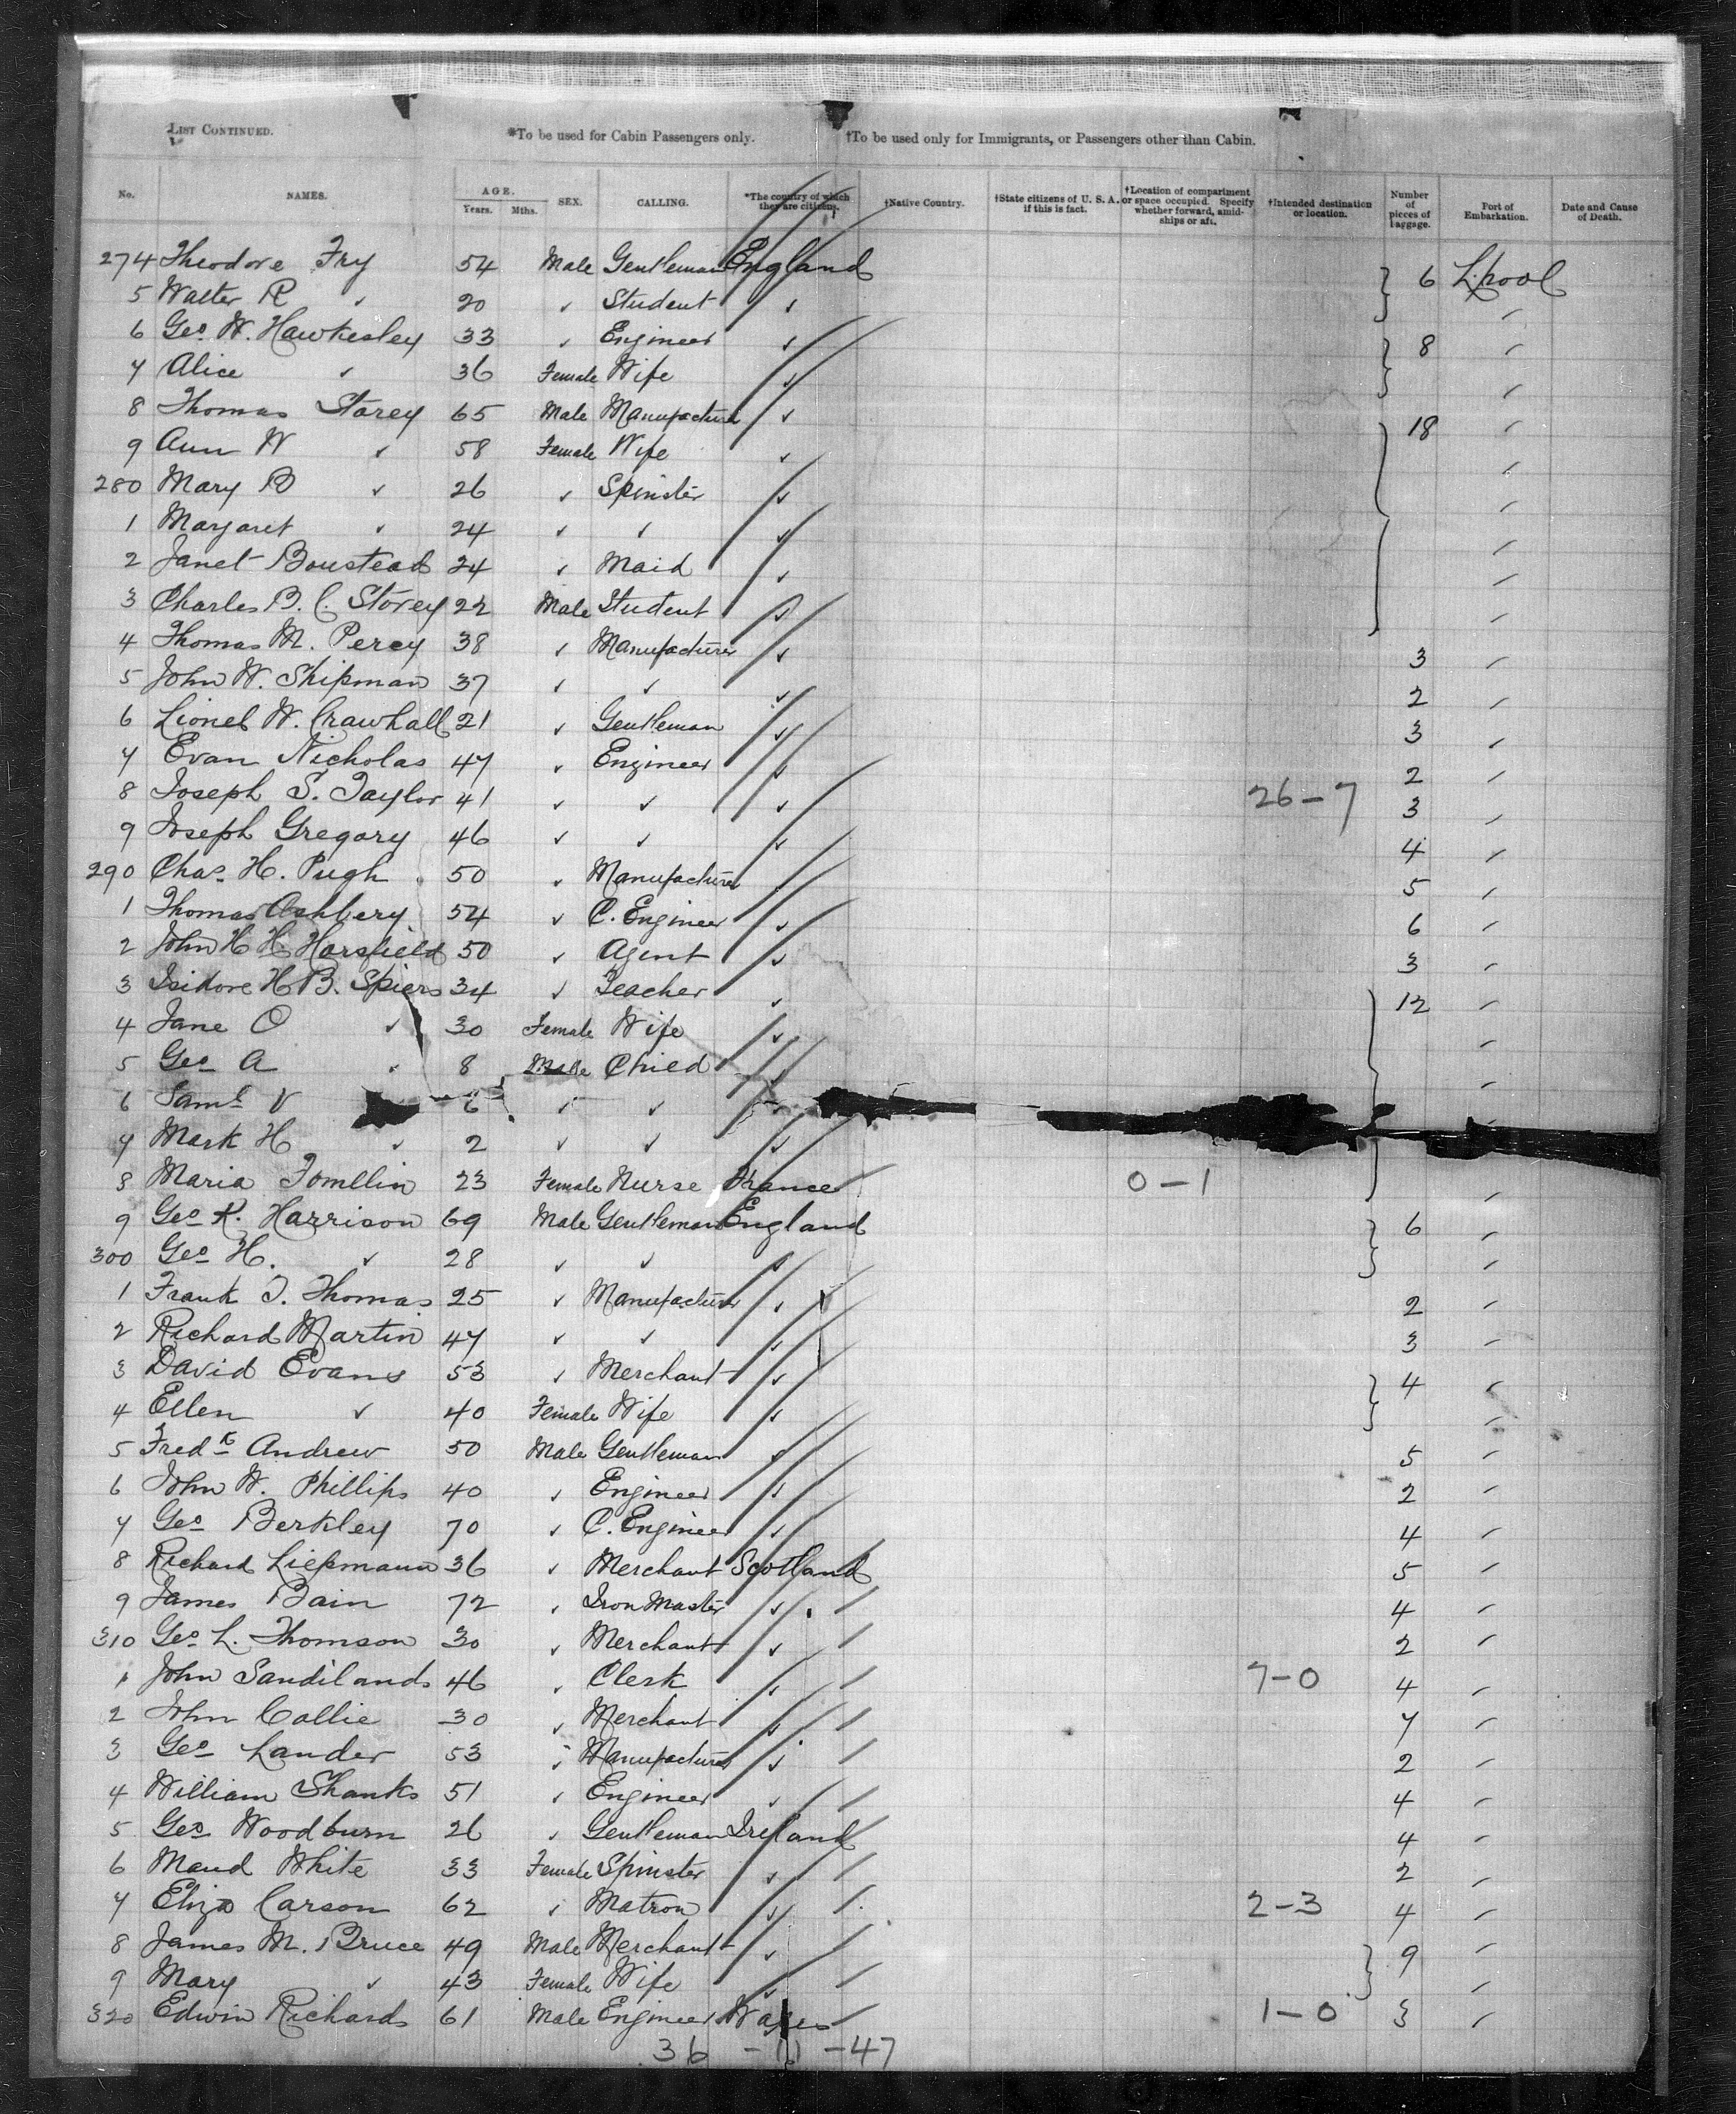 LIST CONTINUED. *To be used for Cabin Passengers only. †To be used only for Immigrants, or Passengers other than Cabin.
No. NAMES. AGE. Years. Mths. SEX. CALLING. *The country of which they are citizens. †Native Country. †State citizens of U. S. A. if this is fact. †Location of compartment or space occupied. Specify whether forward, amidships or aft. †Intended destination or location. Number of pieces of Luggage. Port of Embarkation. Date and Cause of Death.
274 Theodore Fry 54 Male Gentleman England 6 L.pool
5 Walter R " 20 " Student " "
6 Geo. W. Hawkesley 33 " Engineer " 8 "
7 Alice " 36 Female Wife " "
8 Thomas Storey 65 Male Manufacturer " 18 "
9 Ann W " 58 Female Wife " "
280 Mary B " 26 " Spinster " "
1 Margaret " 24 " " " "
2 Janet Boustead 24 " Maid " "
3 Charles B. C. Storey 22 Male Student " "
4 Thomas M. Percy 38 " Manufacturer " 3 "
5 John W. Shipman 37 " " " 2 "
6 Lionel W. Crawhall 21 " Gentleman " 3 "
7 Evan Nicholas 47 " Engineer " 2 "
8 Joseph S. Taylor 41 " " " 26-7 3 "
9 Joseph Gregory 46 " " " 4 "
290 Chas. H. Pugh 50 " Manufacturer " 5 "
1 Thomas Ashbery 54 " C. Engineer " 6 "
2 John H H Horsfield 50 " Agent " 3 "
3 Isidore H B. Spiers 34 " Teacher " 12 "
4 Jane O " 30 Female Wife " "
5 Geo A " 8 Male Child " "
6 Saml V 6 " " " "
7 Mark H " 2 " " "
8 Maria Tomllin 23 Female Nurse France 0-1 "
9 Geo R. Harrison 69 Male Gentleman England 6 "
300 Geo H. " 28 " " " "
1 Frank J. Thomas 25 " Manufacturer " 2 "
2 Richard Martin 47 " " " 3 "
3 David Evans 53 " Merchant " 4 "
4 Ellen " 40 Female Wife " "
5 Fredk Andrew 50 Male Gentleman " 5 "
6 John W. Phillips 40 " Engineer " 2 "
7 Geo Berkley 70 " C. Engineer " 4 "
8 Richard Liepmann 36 " Merchant Scotland 5 "
9 James Bain 72 " Iron Master " 4 "
310 Geo L. Thomson 30 " Merchant " 2 "
1 John Sandilands 46 " Clerk " 7-0 4 "
2 John Collie 30 " Merchant " 7 "
3 Geo Lander 53 " Manufacturer " 2 "
4 William Shanks 51 " Engineer " 4 "
5 Geo Woodburn 26 " Gentleman Ireland 4 "
6 Maud White 33 Female Spinster " 2 "
7 Eliza Carson 62 " Matron " 2-3 4 "
8 James M. Bruce 49 Male Merchant " 9 "
9 Mary " 43 Female Wife " "
320 Edwin Richards 61 Male Engineer Wales 1-0 3 "
36 - 11 - 47